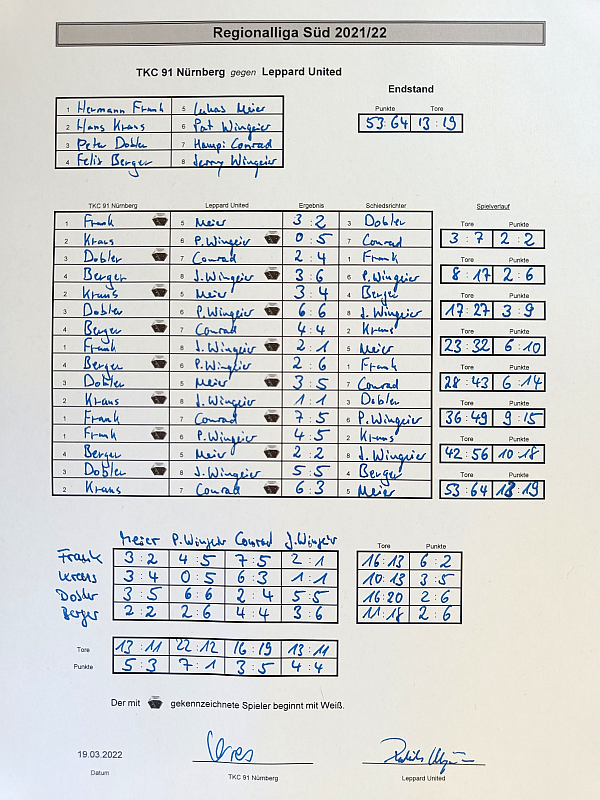 Regionalliga Süd 2021/22
TKC 91 Nürnberg gegen Leppard United
Endstand
Punkte Tore
53:64 13:19
1 Hermann Frank 5 Lukas Meier
2 Hans Kraus 6 Pat Wingeier
3 Peter Dobler 7 Hampi Conrad
4 Felix Berger 8 Jerry Wingeier
TKC 91 Nürnberg Leppard United Ergebnis Schiedsrichter Spielverlauf
Tore Punkte
1 Frank 5 Meier 3:2 3 Dobler
2 Kraus 6 P.Wingeier 0:5 7 Conrad
3:7 2:2
3 Dobler 7 Conrad 2:4 1 Frank
4 Berger 8 J.Wingeier 3:6 6 P.Wingeier
8:17 2:6
2 Kraus 5 Meier 3:4 4 Berger
3 Dobler 6 P.Wingeier 6:6 8 J.Wingeier
17:27 3:9
4 Berger 7 Conrad 4:4 2 Kraus
1 Frank 8 J.Wingeier 2:1 5 Meier
23:32 6:10
4 Berger 6 P.Wingeier 2:6 1 Frank
3 Dobler 5 Meier 3:5 7 Conrad
28:43 6:14
2 Kraus 8 J.Wingeier 1:1 3 Dobler
1 Frank 7 Conrad 7:5 6 P.Wingeier
36:49 9:15
1 Frank 6 P.Wingeier 4:5 2 Kraus
4 Berger 5 Meier 2:2 8 J.Wingeier
42:56 10:18
3 Dobler 8 J.Wingeier 5:5 4 Berger
2 Kraus 7 Conrad 6:3 5 Meier
53:64 13:19
Meier P.Wingeier Conrad J.Wingeier Tore Punkte
Frank 3:2 4:5 7:5 2:1 16:13 6:2
Kraus 3:4 0:5 6:3 1:1 10:13 3:5
Dobler 3:5 6:6 2:4 5:5 16:20 2:6
Berger 2:2 2:6 4:4 3:6 11:18 2:6
Tore 13:11 22:12 16:19 13:11
Punkte 5:3 7:1 3:5 4:4
Der mit gekennzeichnete Spieler beginnt mit Weiß.
19.03.2022
Datum TKC 91 Nürnberg Leppard United